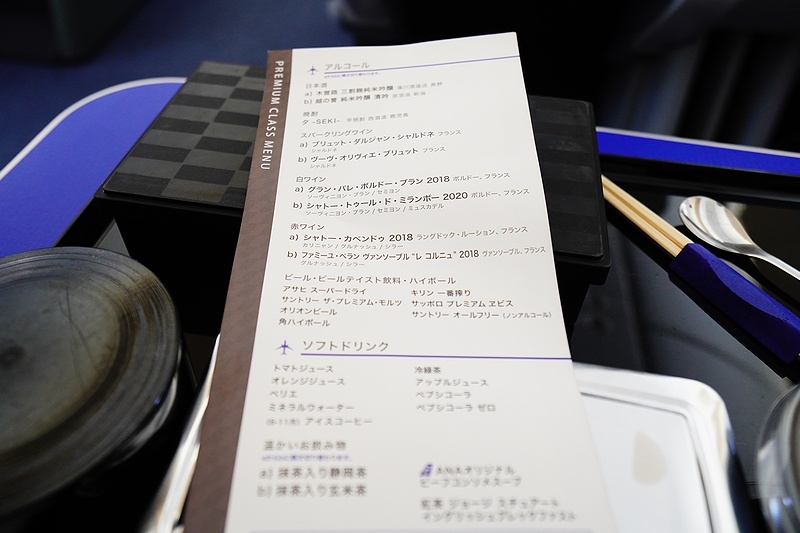 PREMIUM CLASS MENU
アルコール
日本酒
a) 木曽路 三割麹純米吟醸 湯川酒造店 長野
b) 越の誉 純米吟醸 清吟 原酒造 新潟
焼酎
夕 -SEKI- 芋焼酎 西酒造 鹿児島
スパークリングワイン
a) ブリュット・ダルジャン・シャルドネ フランス
シャルドネ
b) ヴーヴ・オリヴィエ・ブリュット フランス
シャルドネ
白ワイン
a) グラン・バレ・ボルドー・ブラン 2018 ボルドー、フランス
ソーヴィニヨン・ブラン / セミヨン
b) シャトー・トゥール・ド・ミランボー 2020 ボルドー、フランス
ソーヴィニヨン・ブラン / セミヨン / ミュスカデル
赤ワイン
a) シャトー・カペンドゥ 2018 ラングドック・ルーション、フランス
カリニャン / グルナッシュ / シラー
b) ファミーユ・ペラン ヴァンソーブル "レ コルニュ" 2018 ヴァンソーブル、フランス
グルナッシュ / シラー
ビール・ビールテイスト飲料・ハイボール
アサヒ スーパードライ
キリン 一番搾り
サントリー ザ・プレミアム・モルツ
サッポロ プレミアム ヱビス
オリオンビール
サントリー オールフリー (ノンアルコール)
角ハイボール
ソフトドリンク
トマトジュース
冷緑茶
オレンジジュース
アップルジュース
ペリエ
ペプシコーラ
ミネラルウォーター
ペプシコーラ ゼロ
(6-11月) アイスコーヒー
温かいお飲み物
a) 抹茶入り静岡茶
b) 抹茶入り玄米茶
ANAオリジナル
ビーフコンソメスープ
紅茶 ジョージ スチュアート
イングリッシュブレックファスト